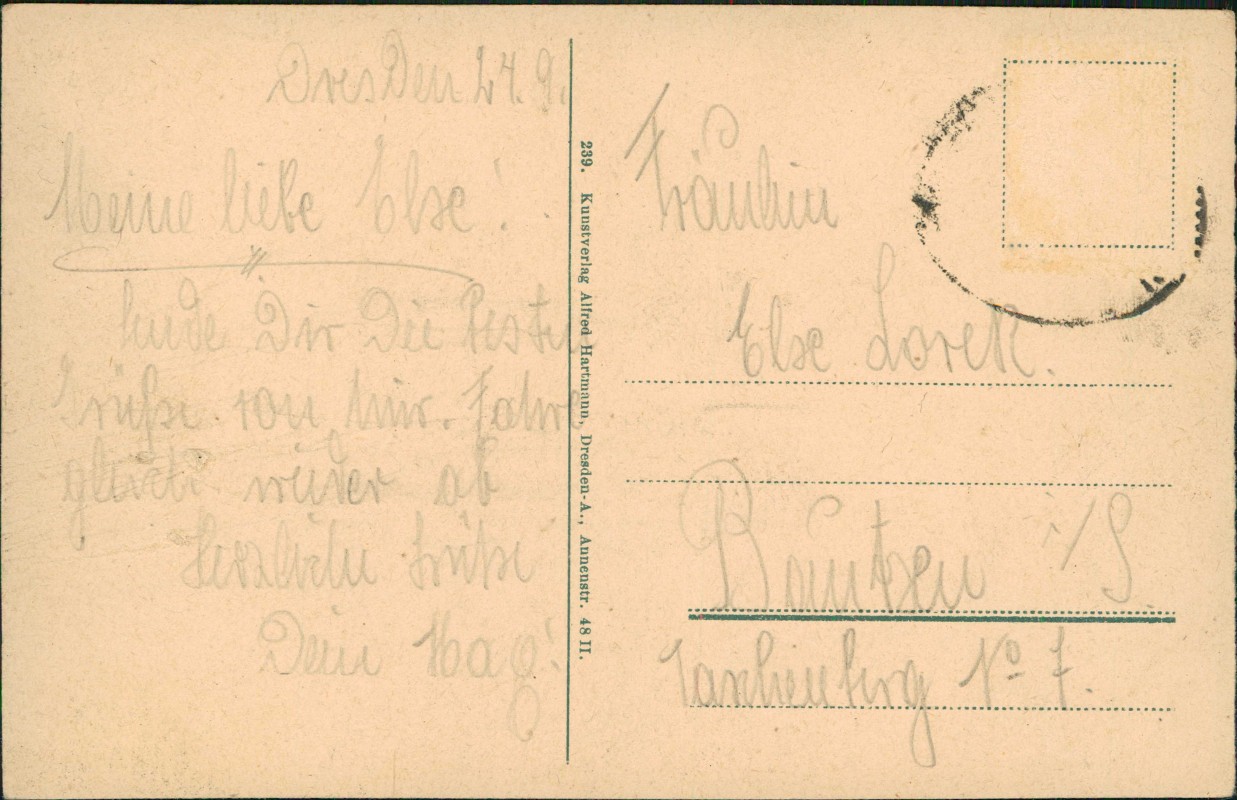 Dresden 24. 9.
Meine liebe Else!
sende Dir die besten
Grüße von hier. Fahre
gleich wieder ab
Herzliche Grüße
Dein
239. Kunstverlag Alfred Hartmann, Dresden-A., Annenstr. 48 II.
Fräulein
Else Lorek.
Bautzen i/S.
Taschenberg No 7.